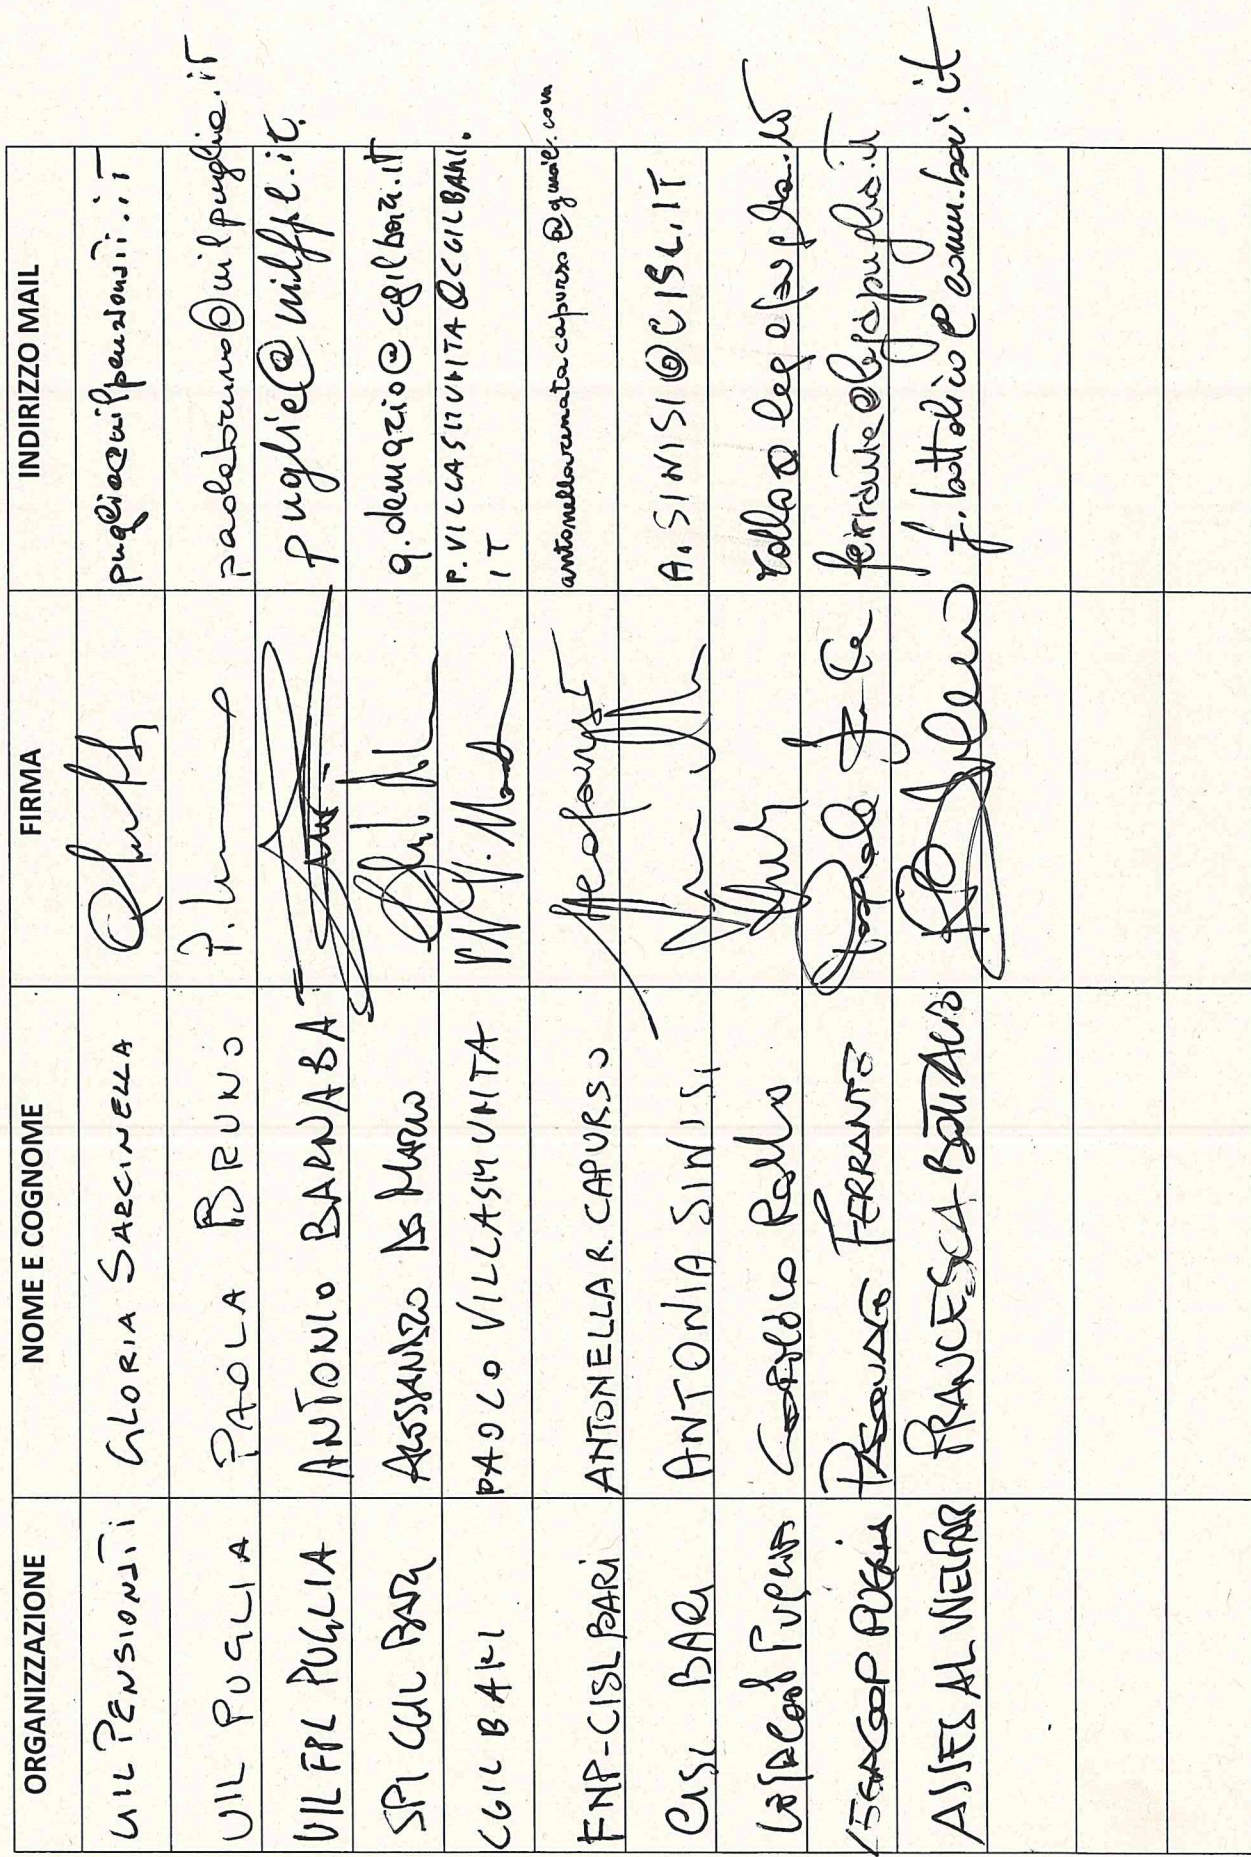 ORGANIZZAZIONE NOME E COGNOME FIRMA INDIRIZZO MAIL
UIL PENSIONATI GLORIA SARCINELLA puglia@uilpensionati.it
UIL PUGLIA PAOLA BRUNO P. paolabruno@uilpuglia.it
UIL FPL PUGLIA ANTONIO BARNABA puglia@uilfpl.it
SPI CGIL BARI ALESSANDRO DE MARIO @cgilbari.it
CGIL BARI PAOLO VILLASMUNTA P.VILLASMUNTA@CGILBARI.
IT
FNP-CISL BARI ANTONELLA R. CAPURSO antonellarenatacapurso@gmail.com
CISL BARI ANTONIA SINISI A.SINISI@CISL.IT
LEGACOOP PUGLIA Rollo
LEGACOOP PUGLIA PASQUALE FERRANTE
ASSES AL WELFARE FRANCESCA BOTTALICO f.bottalico@comune.bari.it